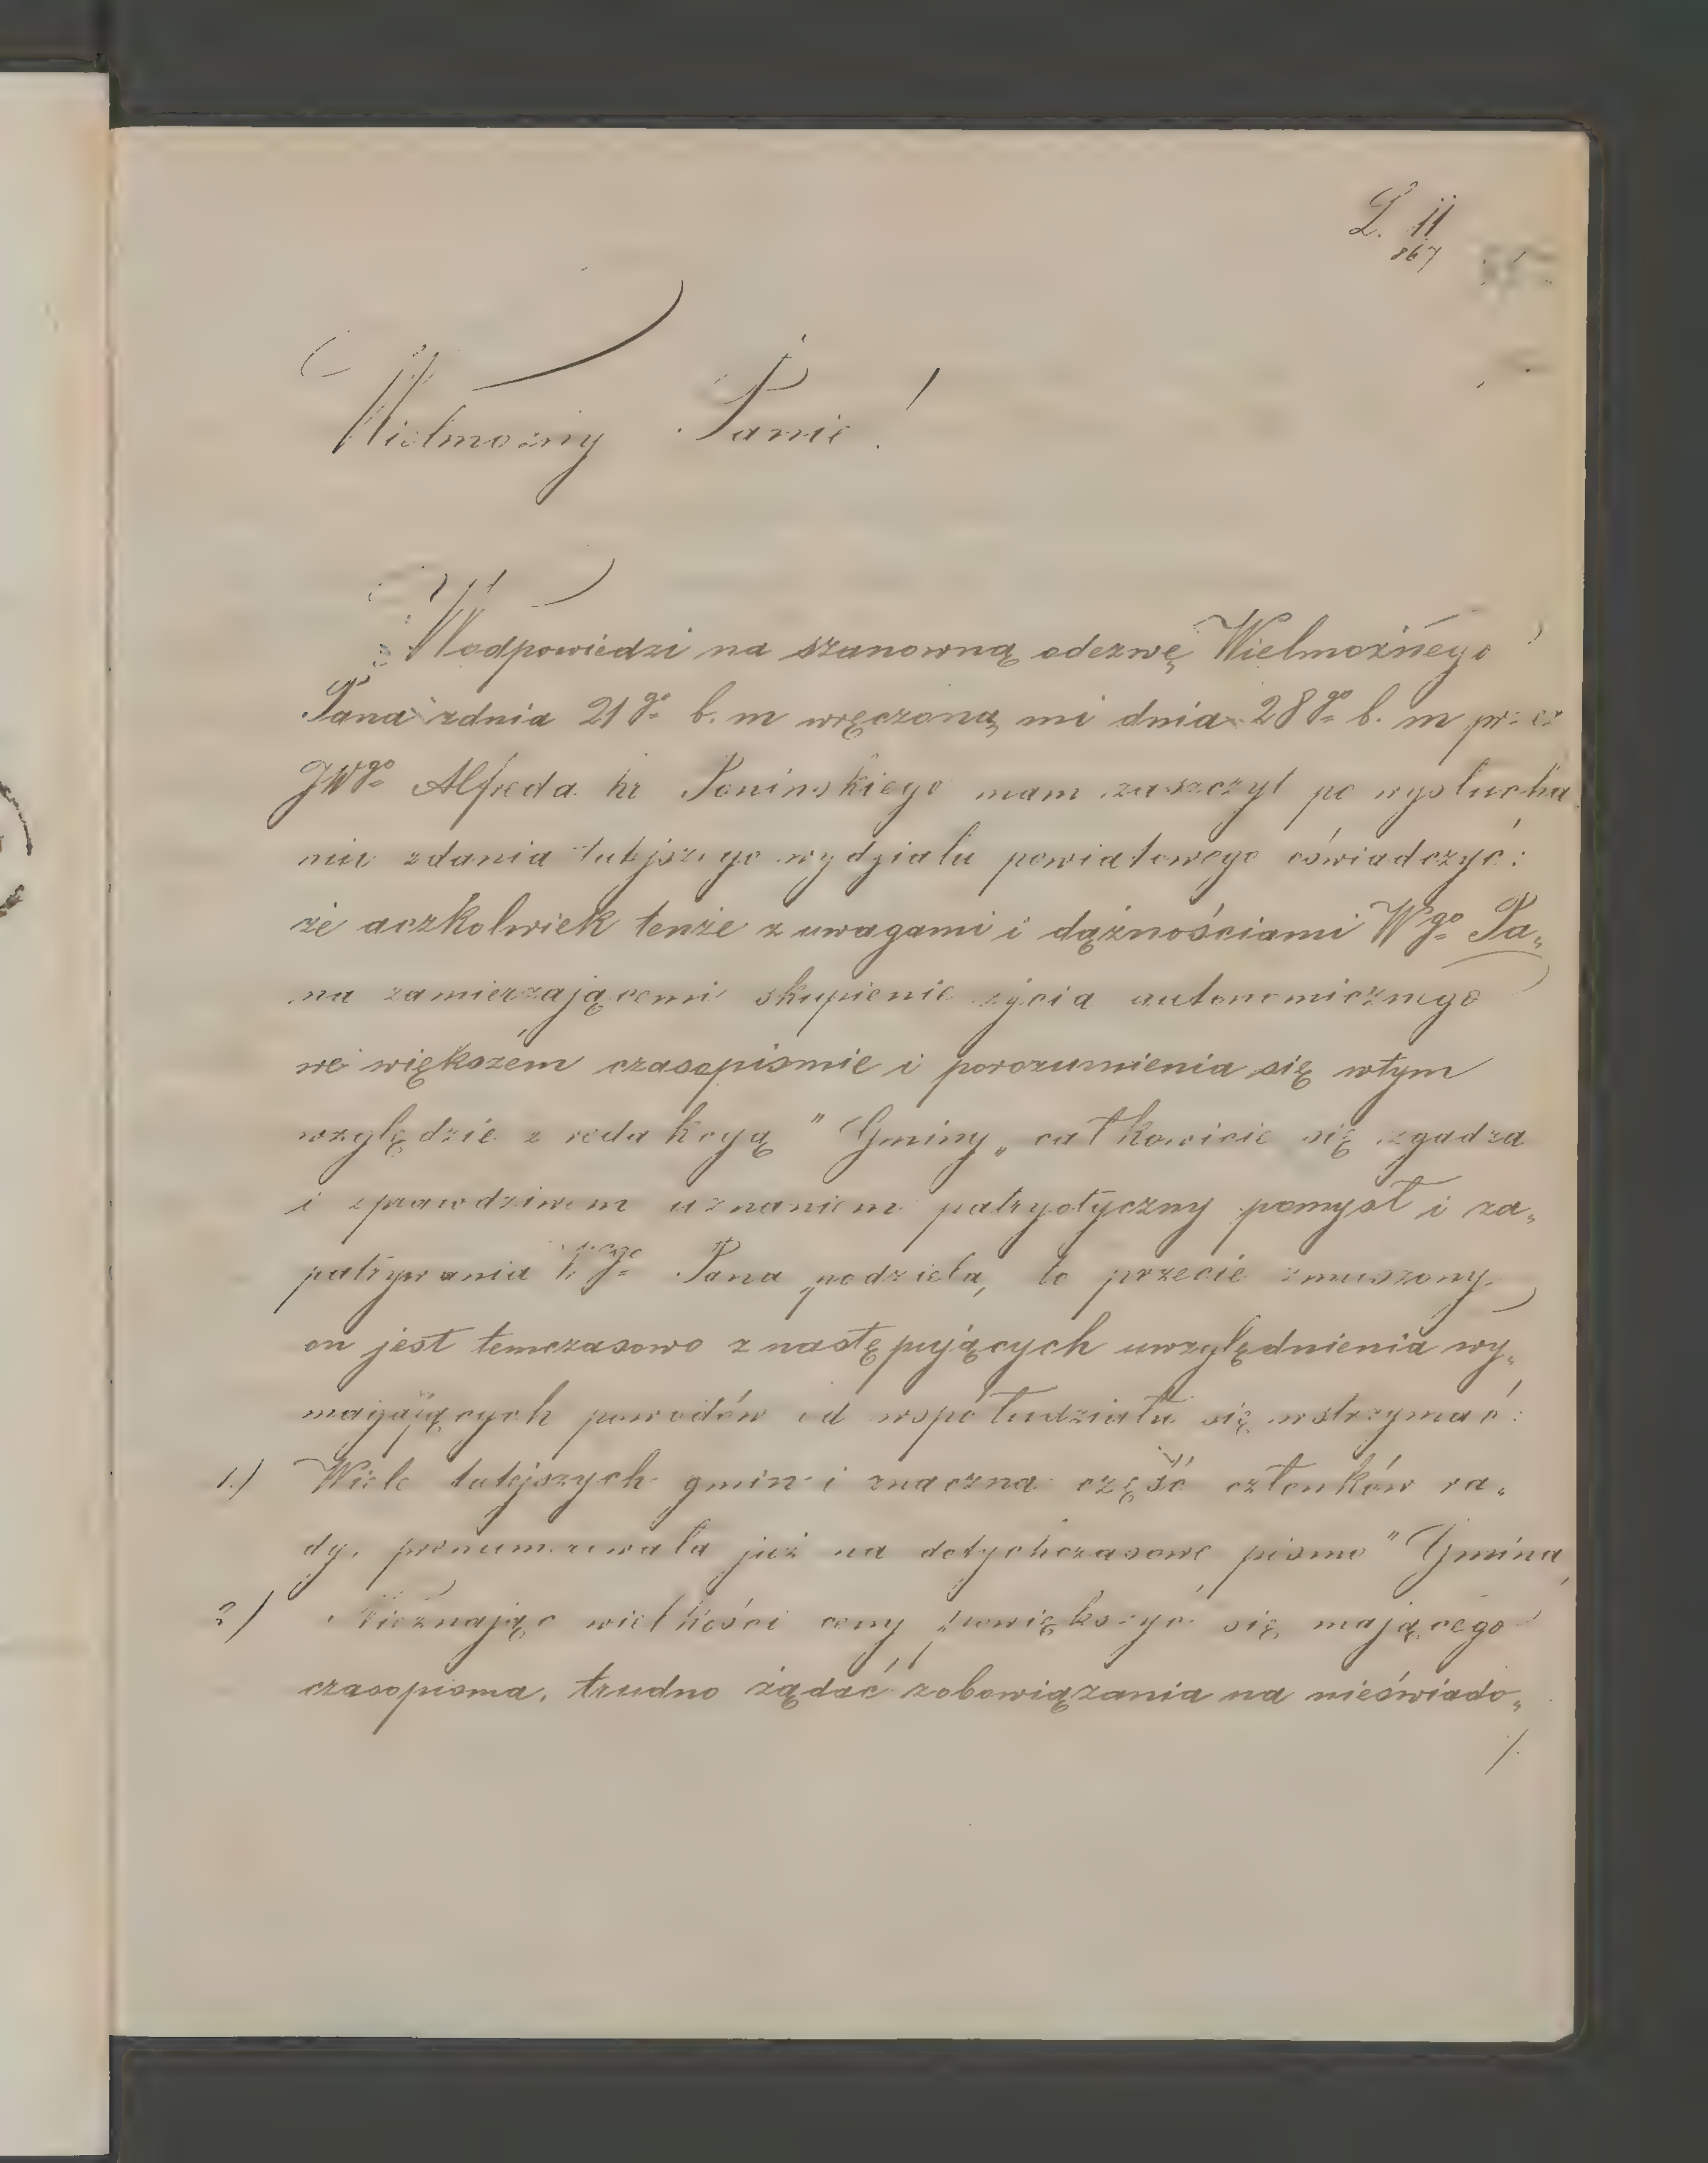 L. 11
867
Wielmożny Panie!
W odpowiedzi na szanowną odezwę Wielmożnego
Pana z dnia 21go b. m wręczoną mi dnia 28go b. m przez
JWgo Alfreda hr Poninskiego mam zaszczyt po wysłucha
niu zdania tutejszego wydziału powiatowego oświadczyć:
że aczkolwiek tenże z uwagami i dążnościami Wgo Pa„
na zamierzającemi skupienie życia autonomicznego
we większem czasopismie i porozumienia się wtym
względzie z redakcyą "Gminy„ całkowicie się zgadza
i zprawdziwem uznaniem patryotyczny pomysł i za„
patrywania Wgo Pana podziela, to przecie zmuszony
on jest temczasowo z następujących uwzględnienia wy„
magających powodów od wspołudziału się wstrzymać:
1.) Wiele tutejszych gmin i znaczna część członków ra„
dy, prenumerowała już na dotychczasowe pismo "Gmina„
2) Nieznając wielkości ceny powiększyć się mającego
czasopisma, trudno żądać zobowiązania na nieświado„
/.